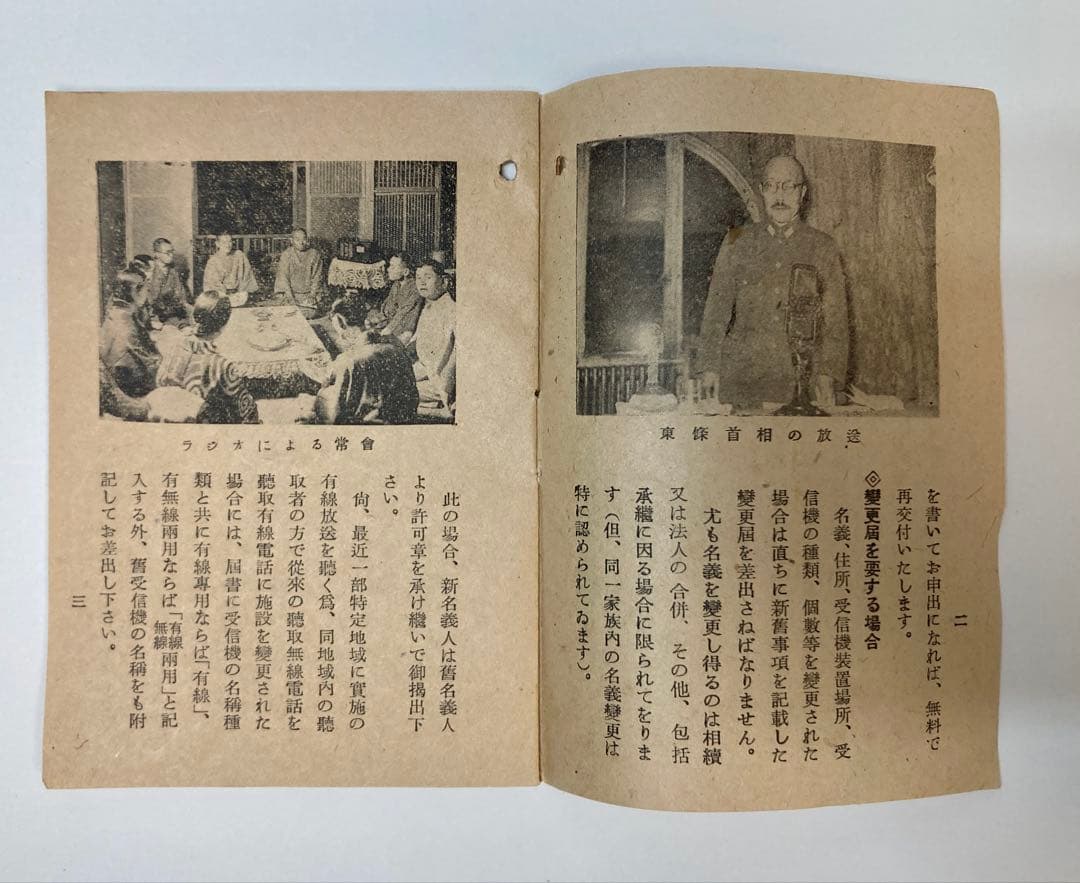 東條首相の放送
を書いてお申出になれば、無料で
再交付いたします。
◎變更屆を要する場合
名義、住所、受信機裝置場所、受
信機の種類、個數等を變更された
場合は直ちに新舊事項を記載した
變更屆を差出さねばなりません。
尤も名義を變更し得るのは相續
又は法人の合併、その他、包括
承繼に因る場合に限られてをりま
す（但、同一家族内の名義變更は
特に認められてゐます）。
二
ラジオによる常會
此の場合、新名義人は舊名義人
より許可章を承け繼いで御揭出下
さい。
尙、最近一部特定地域に實施の
有線放送を聽く爲、同地域内の聽
取者の方で從來の聽取無線電話を
聽取有線電話に施設を變更された
場合には、屆書に受信機の名稱種
類と共に有線專用ならば「有線」、
有無線兩用ならば「有線無線兩用」と記
入する外、舊受信機の名稱をも附
記してお差出し下さい。
三